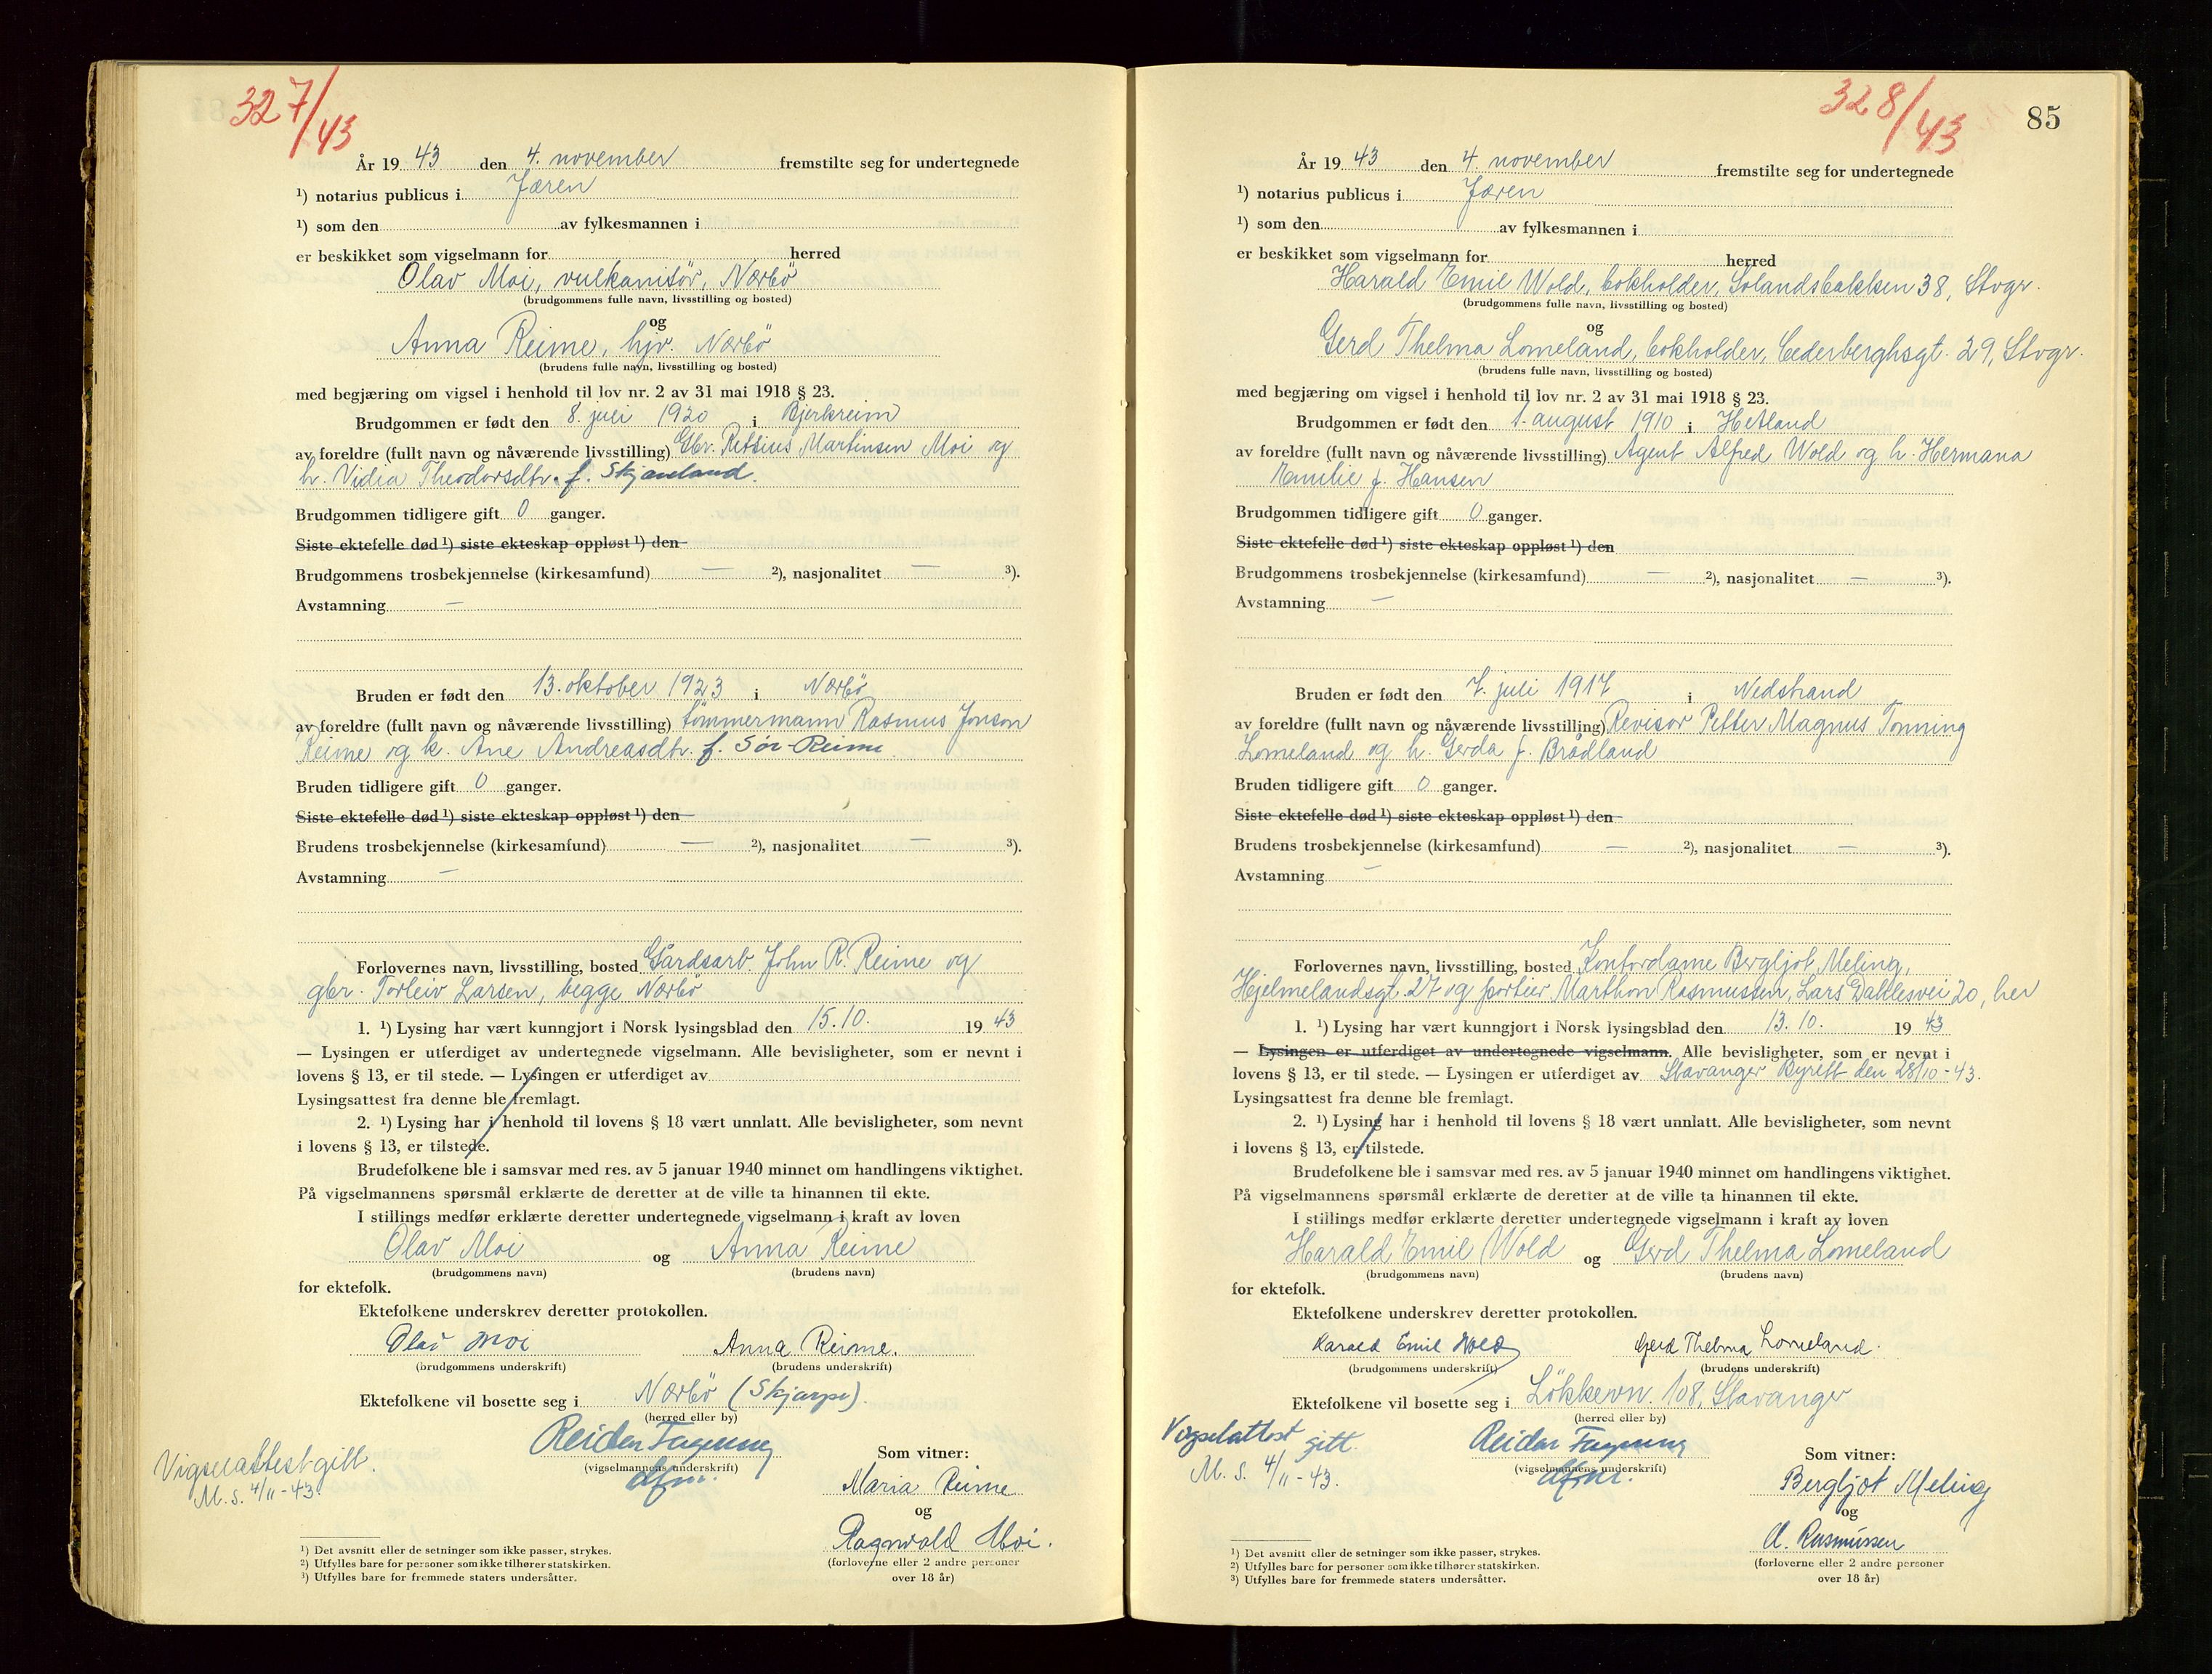 327/43
År 19 43 den 4. november fremstilte seg for undertegnede
¹) notarius publicus i Jæren
¹) som den av fylkesmannen i
er beskikket som vigselmann for herred
Olav Moi, vulkanisør, Nærbö
(brudgommens fulle navn, livsstilling og bosted)
og
Anna Reime, hjv. Nærbö
(brudens fulle navn, livsstilling og bosted)
med begjæring om vigsel i henhold til lov nr. 2 av 31 mai 1918 § 23.
Brudgommen er født den 8. juli 1920 i Bjerkreim
av foreldre (fullt navn og nåværende livsstilling) Gbr. Retsius Martinsen Moi og
h. Vidia Theodorsdtr. f. Skjæveland.
Brudgommen tidligere gift 0 ganger.
Siste ektefelle død ¹) siste ekteskap oppløst ¹) den
Brudgommens trosbekjennelse (kirkesamfund) — ²), nasjonalitet — ³).
Avstamning —
Bruden er født den 13. oktober 1923 i Nærbö
av foreldre (fullt navn og nåværende livsstilling) tömmermann Rasmus Jonson
Reime og h. Ane Andreasdtr. f. Sör-Reime
Bruden tidligere gift 0 ganger.
Siste ektefelle død ¹) siste ekteskap oppløst ¹) den
Brudens trosbekjennelse (kirkesamfund) — ²), nasjonalitet — ³).
Avstamning —
Forlovernes navn, livsstilling, bosted Gårdsarb. John R. Reime og
gbr. Torleiv Larsen, begge Nærbö
1. ¹) Lysing har vært kunngjort i Norsk lysingsblad den 15.10. 19 43
— Lysingen er utferdiget av undertegnede vigselmann. Alle bevisligheter, som er nevnt i
lovens § 13, er til stede. — Lysingen er utferdiget av
Lysingsattest fra denne ble fremlagt.
2. ¹) Lysing har i henhold til lovens § 18 vært unnlatt. Alle bevisligheter, som nevnt
i lovens § 13, er tilstede.
Brudefolkene ble i samsvar med res. av 5 januar 1940 minnet om handlingens viktighet.
På vigselmannens spørsmål erklærte de deretter at de ville ta hinannen til ekte.
I stillings medfør erklærte deretter undertegnede vigselmann i kraft av loven
Olav Moi og Anna Reime
(brudgommens navn) (brudens navn)
for ektefolk.
Ektefolkene underskrev deretter protokollen.
Olav Moi Anna Reime.
(brudgommens underskrift) (brudens underskrift)
Ektefolkene vil bosette seg i Nærbö (Skjærpe).
(herred eller by)
Reidar
(vigselmannens underskrift)
dfm.
Vigselattest gitt.
M. S. 4/11-43.
Som vitner:
Maria Reime
og
Ragnvald Moi.
(forloverne eller 2 andre personer
over 18 år)
¹) Det avsnitt eller de setninger som ikke passer, strykes.
²) Utfylles bare for personer som ikke tilhører statskirken.
³) Utfylles bare for fremmede staters undersåtter.
328/43
85
År 19 43 den 4. november fremstilte seg for undertegnede
¹) notarius publicus i Jæren
¹) som den av fylkesmannen i
er beskikket som vigselmann for herred
Harald Emil Wold, bokholder, Solandsbakken 38, Stvgr.
(brudgommens fulle navn, livsstilling og bosted)
og
Gerd Thelma Lomeland, bokholder, Cederberghsgt. 29, Stvgr.
(brudens fulle navn, livsstilling og bosted)
med begjæring om vigsel i henhold til lov nr. 2 av 31 mai 1918 § 23.
Brudgommen er født den 1. august 1910 i Hetland
av foreldre (fullt navn og nåværende livsstilling) Agent Alfred Wold og h. Hermana
Emilie f. Hansen
Brudgommen tidligere gift 0 ganger.
Siste ektefelle død ¹) siste ekteskap oppløst ¹) den
Brudgommens trosbekjennelse (kirkesamfund) — ²), nasjonalitet — ³).
Avstamning —
Bruden er født den 7. juli 1917 i Nedstrand
av foreldre (fullt navn og nåværende livsstilling) Revisor Petter Magnus Tonning
Lomeland og h. Gerda f. Brådland
Bruden tidligere gift 0 ganger.
Siste ektefelle død ¹) siste ekteskap oppløst ¹) den
Brudens trosbekjennelse (kirkesamfund) — ²), nasjonalitet — ³).
Avstamning —
Forlovernes navn, livsstilling, bosted Kontordame Bergljot Meling,
Hjelmelandsgt. 27 og portier Marthon Rasmussen, Lars Dahlesvei 20, her
1. ¹) Lysing har vært kunngjort i Norsk lysingsblad den 13.10. 19 43
— Lysingen er utferdiget av undertegnede vigselmann. Alle bevisligheter, som er nevnt i
lovens § 13, er til stede. — Lysingen er utferdiget av Stavanger Byrett den 28/10-43.
Lysingsattest fra denne ble fremlagt.
2. ¹) Lysing har i henhold til lovens § 18 vært unnlatt. Alle bevisligheter, som nevnt
i lovens § 13, er tilstede.
Brudefolkene ble i samsvar med res. av 5 januar 1940 minnet om handlingens viktighet.
På vigselmannens spørsmål erklærte de deretter at de ville ta hinannen til ekte.
I stillings medfør erklærte deretter undertegnede vigselmann i kraft av loven
Harald Emil Wold og Gerd Thelma Lomeland
(brudgommens navn) (brudens navn)
for ektefolk.
Ektefolkene underskrev deretter protokollen.
Harald Emil Wold Gerd Thelma Lomeland.
(brudgommens underskrift) (brudens underskrift)
Ektefolkene vil bosette seg i Lökkevn. 108, Stavanger
(herred eller by)
Vigselattest gitt.
M. S. 4/11-43.
Reidar
(vigselmannens underskrift)
dfm.
Som vitner:
Bergljot Meling
og
M. Rasmussen
(forloverne eller 2 andre personer
over 18 år)
¹) Det avsnitt eller de setninger som ikke passer, strykes.
²) Utfylles bare for personer som ikke tilhører statskirken.
³) Utfylles bare for fremmede staters undersåtter.